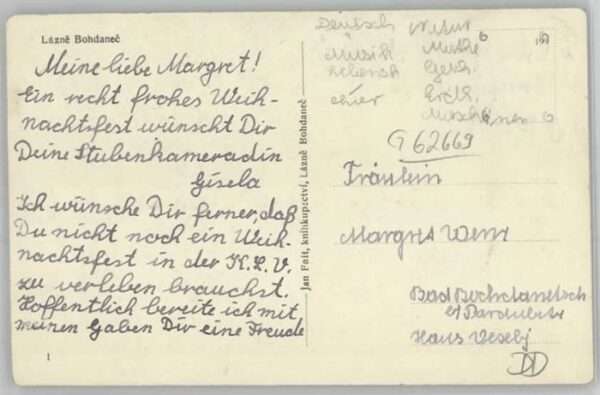 Lázně Bohdaneč
Meine liebe Margret!
Ein recht frohes Weih-
nachtsfest wünscht Dir
Deine Stubenkameradin
Gisela
Ich wünsche Dir ferner, daß
Du nicht noch ein Weih-
nachtsfest in der K.L.V.
zu verleben brauchst.
Hoffentlich bereite ich mit
meinen Gaben Dir eine Freude
1
Jan Fait, knihkupectví, Lázně Bohdaneč
Deutsch Natur
Musik Mathe
Gesch.
Erdk.
G 62669
Fräulein
Margret
Bad
Hans Veselý